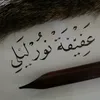 عفيفة نور ليلي